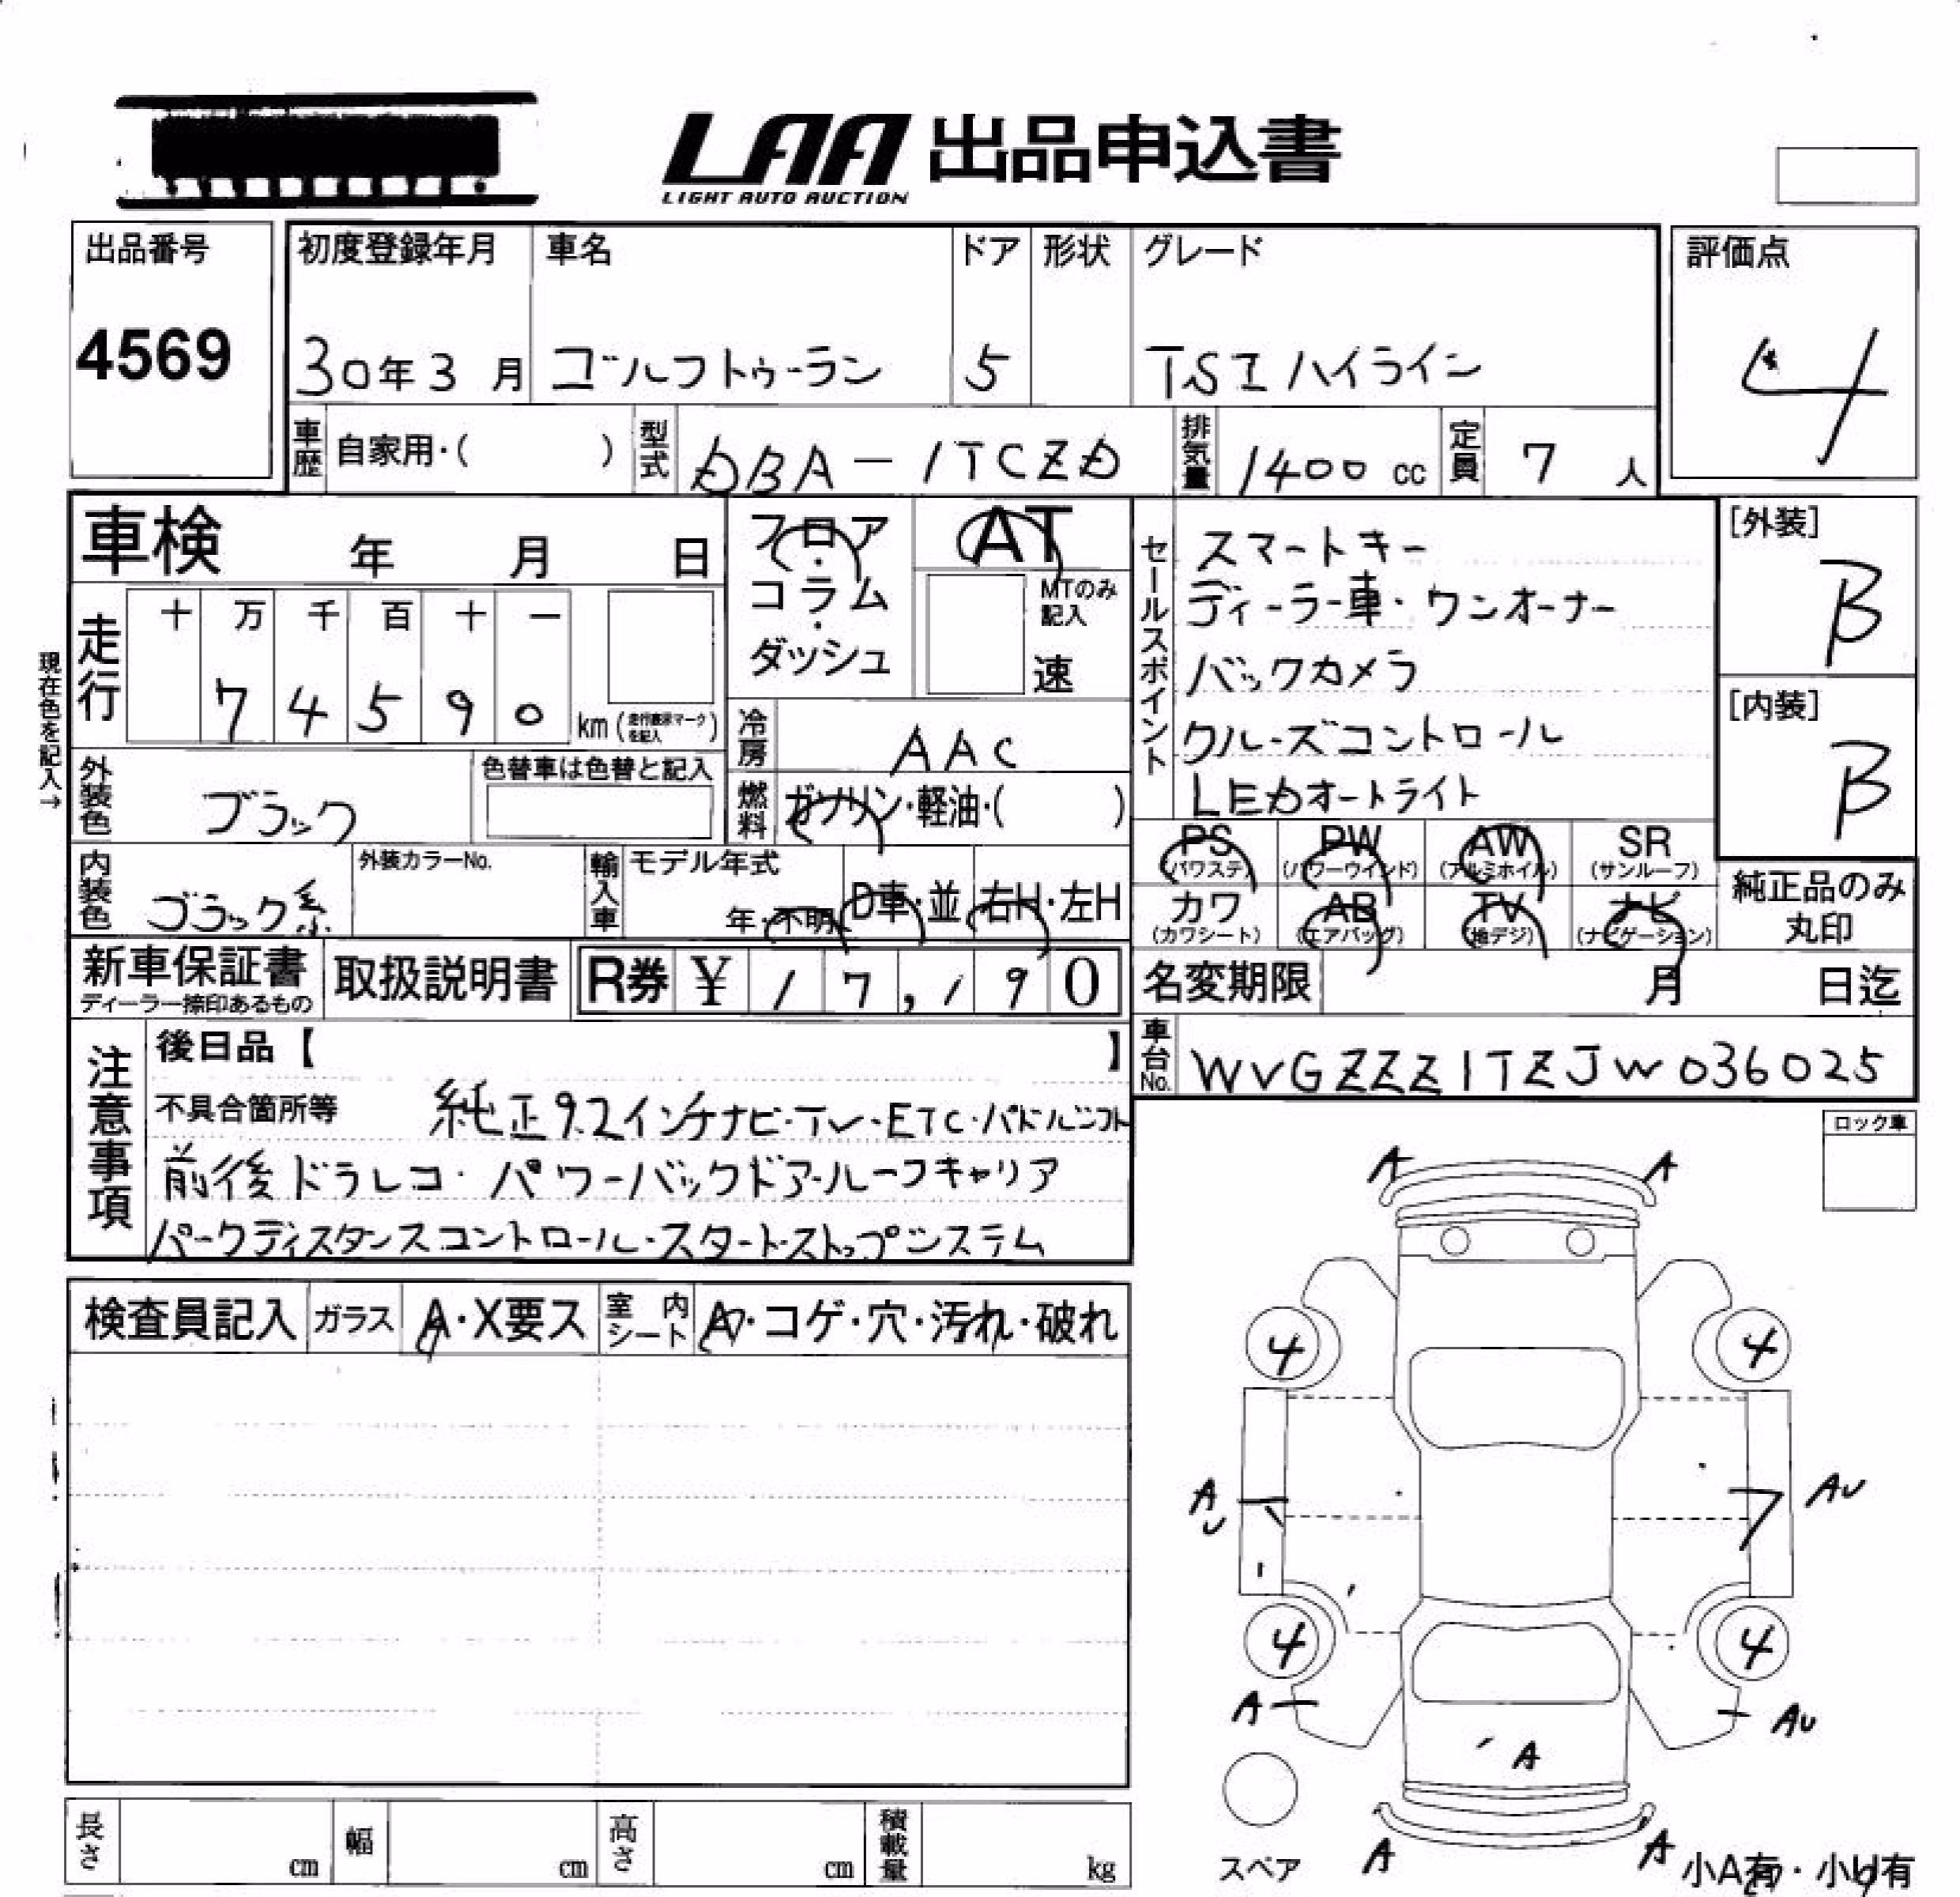 LAA 出品申込書
LIGHT AUTO AUCTION
出品番号
4569
初度登録年月
30年3月
車名
ゴルフトゥーラン
ドア
5
形状
グレード
TSI ハイライン
評価点
4
車歴 自家用・( )
型式 DBA-1TCZD
排気量 1400 cc
定員 7 人
車検 年 月 日
フロア・コラム・ダッシュ
AT
MTのみ記入
速
現在色を記入→
走行
十 万 千 百 十 一
7 4 5 9 0
km (走行表示マークを記入)
冷房 AAC
燃料 ガソリン・軽油・( )
外装色 ブラック
色替車は色替と記入
内装色 ブラック系
外装カラーNo.
輸入車
モデル年式
年・不明
D車・並
右H・左H
セールスポイント
スマートキー
ディーラー車・ワンオーナー
バックカメラ
クルーズコントロール
LEDオートライト
[外装]
B
[内装]
B
PS (パワステ)
PW (パワーウインド)
AW (アルミホイル)
SR (サンルーフ)
カワ (カワシート)
AB (エアバッグ)
TV (地デジ)
ナビ (ナビゲーション)
純正品のみ丸印
新車保証書
ディーラー捺印あるもの
取扱説明書
R券 ¥ 17,190
名変期限 月 日迄
車台No. WVGZZZ1TZJW036025
注意事項
後日品【 】
不具合箇所等 純正9.2インチナビ・TV・ETC・パドルシフト
前後ドラレコ・パワーバックドア・ルーフキャリア
パークディスタンスコントロール・スタートストップシステム
ロック車
検査員記入
ガラス A・X要ス
室内シート
コゲ・穴・汚れ・破れ
A A
4 4
AU AU
4 4
A AU
A
A A
スペア
小A有・小U有
長さ cm
幅 cm
高さ cm
積載量 kg